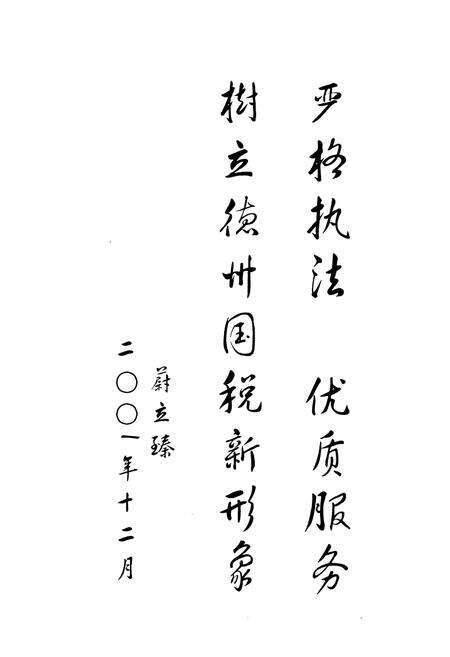 严格执法 优质服务
樹立德州国税新形象
蔚立臻
二〇〇一年十二月